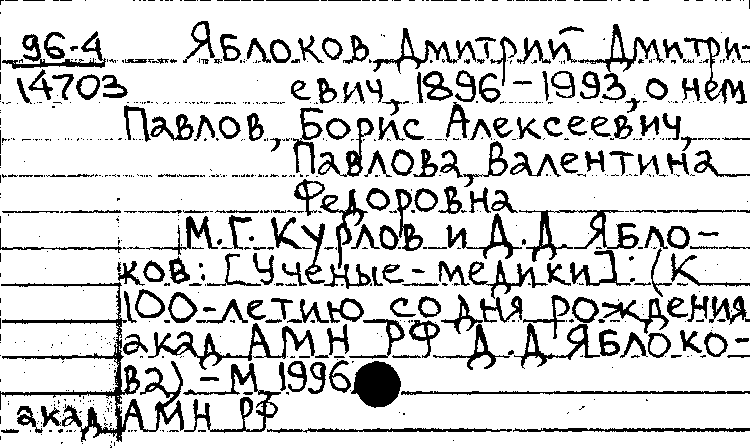 96-4 Яблоков, Дмитрий Дмитри-
14703 евич, 1896-1993, о нем
Павлов, Борис Алексеевич,
Павлова, Валентина
Федоровна
М.Г. Курлов и Д.Д. Ябло-
ков: [Ученые-медики]: (К
100-летию со дня рождения
акад. АМН РФ Д.Д. Яблоко-
ва) - М 1996
акад АМН РФ